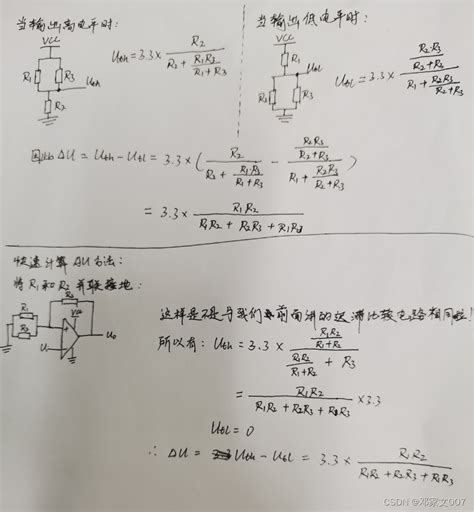 当输出高电平时:
VCC
R₁ R₃ Uth
R₂
Uth = 3.3 × R₂ / (R₂ + R₁R₃/(R₁+R₃))
当输出低电平时:
VCC
R₁
Utl
R₂ R₃
Utl = 3.3 × (R₂·R₃/(R₂+R₃)) / (R₁ + R₂R₃/(R₂+R₃))
因此 ΔU = Uth - Utl = 3.3 × ( R₂ / (R₂ + R₁·R₃/(R₁+R₃)) - (R₂R₃/(R₂+R₃)) / (R₁ + R₂R₃/(R₂+R₃)) )
= 3.3 × R₁R₂ / (R₁R₂ + R₂R₃ + R₁R₃)
快速计算ΔU方法:
将 R₁和 R₂ 并联接地:
R₃
R₁
R₂
VCC
Uo
Ui
这样是不是与我们前面讲的迟滞比较电路相同啦!
所以有: Uth = 3.3 × (R₁R₂/(R₁+R₂)) / (R₁R₂/(R₁+R₂) + R₃)
= R₁R₂ / (R₁R₂ + R₂R₃ + R₁R₃) × 3.3
Utl = 0
∴ ΔU = Uth - Utl = 3.3 × R₁R₂ / (R₁R₂ + R₂R₃ + R₁R₃)
CSDN @邓家文007